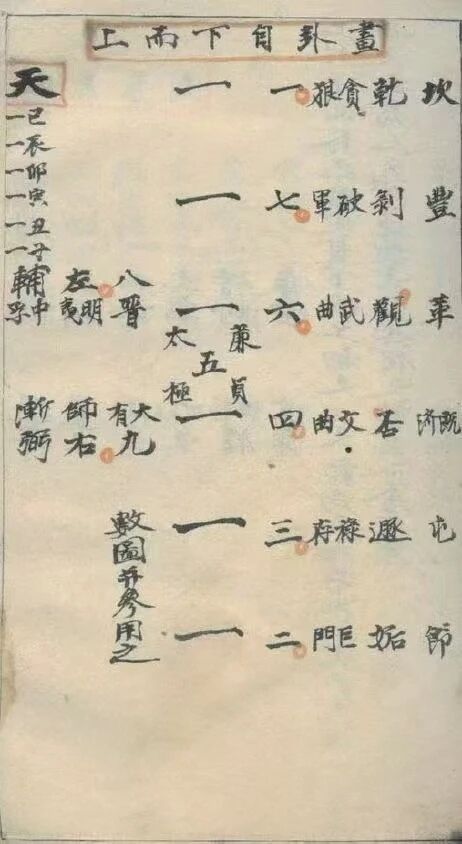 畫卦自下而上
坎 乾 貪狼 一 一
豐 剝 破軍 七 一
革 觀 武曲 六 一
廉貞 五 太極
既濟 否 文曲 四 一
屯 遯 祿存 三 一
節 姤 巨門 二 一
天
一巳
一辰
一卯
一寅
一丑
一子
八晉 左明夷 輔中孚
大有九 師右 漸弼
數圖并參用之